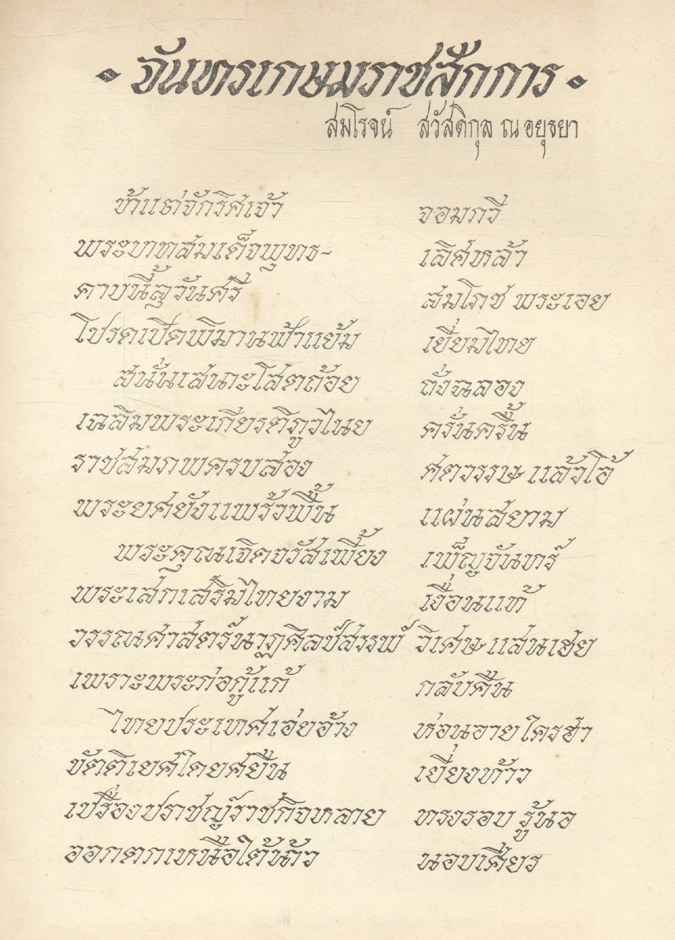 จันทรเกษมราชสักการ
สมโรจน์ สวัสดิกุล ณ อยุธยา
ข้าแต่จักริศเจ้า จอมกวี
พระบาทสมเด็จพุทธ- เลิศหล้า
คาบนี้ลุวันศรี สมโภช พระเอย
โปรดเปิดพิมานฟ้าแย้ม เยี่ยมไทย
สนั่นเสนาะโสตถ้อย ถั่งฉลอง
เฉลิมพระเกียรติภูวไนย ครั่นครื้น
ราชสมภพครบสอง ศตวรรษ แล้วโอ้
พระยศยังแพร้วพื้น แผ่นสยาม
พระคุณเจิดจรัสเพี้ยง เพ็ญจันทร์
พระเสกเสริมไทยงาม เงื่อนแท้
วรรณศาสตร์นาฏศิลป์สรรพ์ วิเศษ แสนเฮย
เพราะพระก่อกู้แก้ กลับคืน
ไทยประเทศเอ่ยอ้าง ห่อนอายใครฮา
ขัตติเยศโดยศยืน เยี่ยงท้าว
เปรื่องปราชญ์ราชกิจหลาย ทรงรอบ รู้นอ
ออกตกเหนือใต้น้าว นอบเศียร